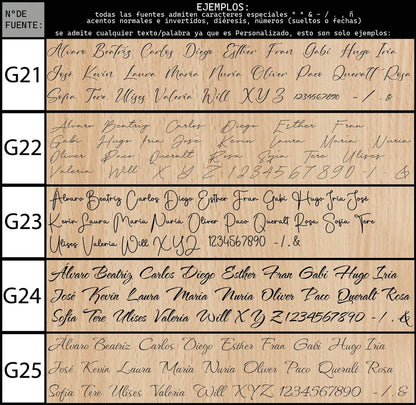 Nº DE FUENTE:
EJEMPLOS:
todas las fuentes admiten caracteres especiales * * & - / , . ñ
acentos normales e invertidos, diéresis, números (sueltos o fechas)
se admite cualquier texto/palabra ya que es Personalizado, esto son solo ejemplos:
G21
Alvaro Beatriz Carlos Diego Esther Fran Gabi Hugo Iria
José Kevin Laura María Nuria Oliver Paco Queralt Rosa
Sofía Tere Ulises Valeria Will X Y Z 1234567890 - / . &
G22
Alvaro Beatriz Carlos Diego Esther Fran
Gabi Hugo Iria José Kevin Laura María Nuria
Oliver Paco Queralt Rosa Sofía Tere Ulises
Valeria Will X Y Z 1234567890 - / . &
G23
Alvaro Beatriz Carlos Diego Esther Fran Gabi Hugo Iria José
Kevin Laura María Nuria Oliver Paco Queralt Rosa Sofía Tere
Ulises Valeria Will X Y Z 1234567890 - / . &
G24
Álvaro Beatriz Carlos Diego Esther Fran Gabi Hugo Iria
José Kevin Laura María Nuria Oliver Paco Queralt Rosa
Sofía Tere Ulises Valeria Will X Y Z 1234567890 - / . &
G25
Álvaro Beatriz Carlos Diego Esther Fran Gabi Hugo Iria
José Kevin Laura María Nuria Oliver Paco Queralt Rosa
Sofía Tere Ulises Valeria Will XYZ 1234567890 - / . &